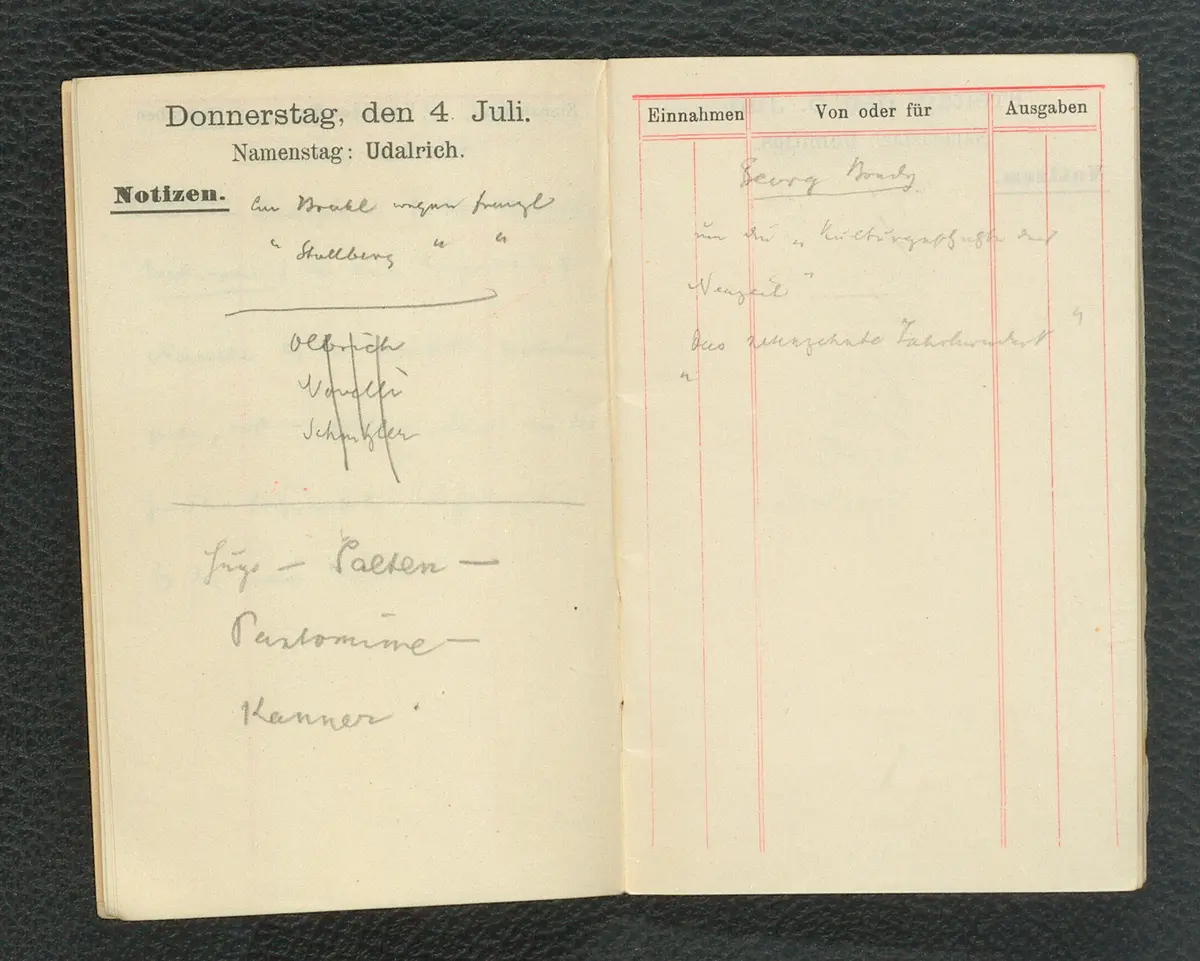 Donnerstag, den 4. Juli.
Namenstag: Udalrich.
Notizen.
An Brahl wegen Franzl
" Stollberg " "
Olbrich
Novelli
Schnitzler
Hugo — Salten —
Pantomime —
Kanner
Einnahmen Von oder für Ausgaben
Georg Bondy
um die „Kulturgeschichte der
Neuzeit"
Das neunzehnte Jahrhundert "
"